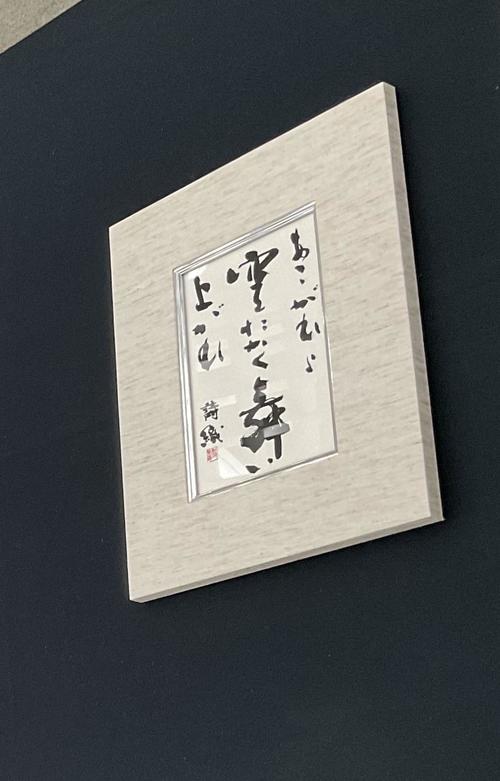 あこがれよ
雲たかく舞い
上がれ
詩織